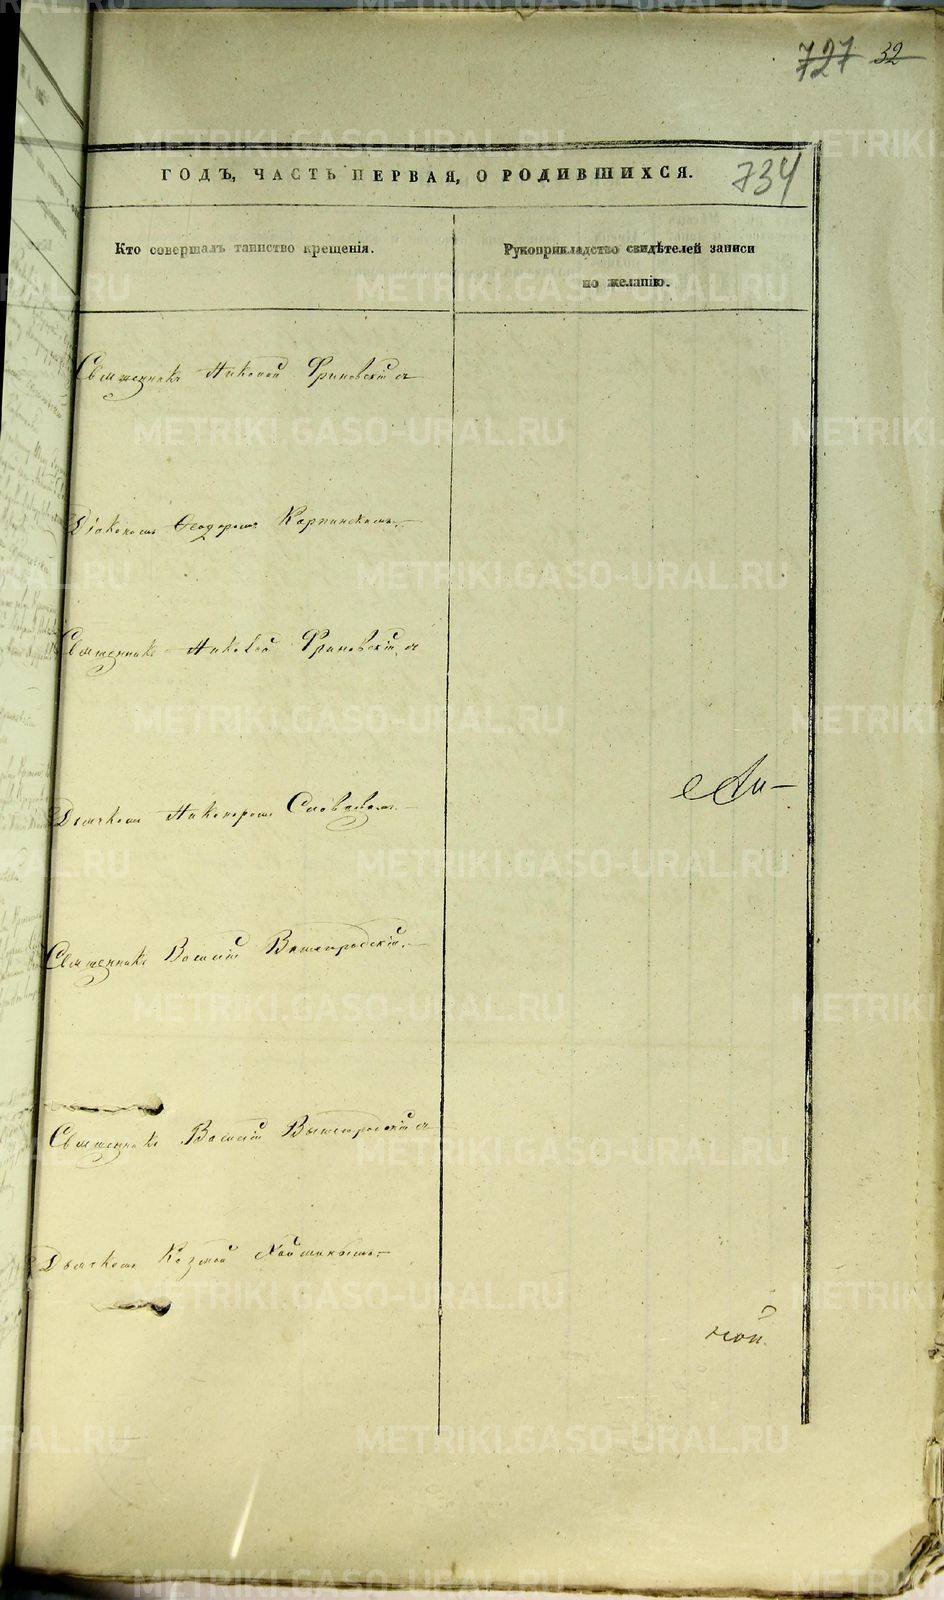 727 32
734
ГОДЪ, ЧАСТЬ ПЕРВАЯ, О РОДИВШИХСЯ.
Кто совершалъ таинство крещенія.
Рукоприкладство свидѣтелей записи
по желанію.
Священникъ Николай Фриновскій съ
Діакономъ Ѳеодоромъ Карпинскимъ.
Священникъ Николай Фриновскій съ
Дьячкомъ Никаноромъ
Священникъ Василій Вышегородскій.
Священникъ Василій Вышегородскій съ
Дьячкомъ Козмой
METRIKI.GASO-URAL.RU